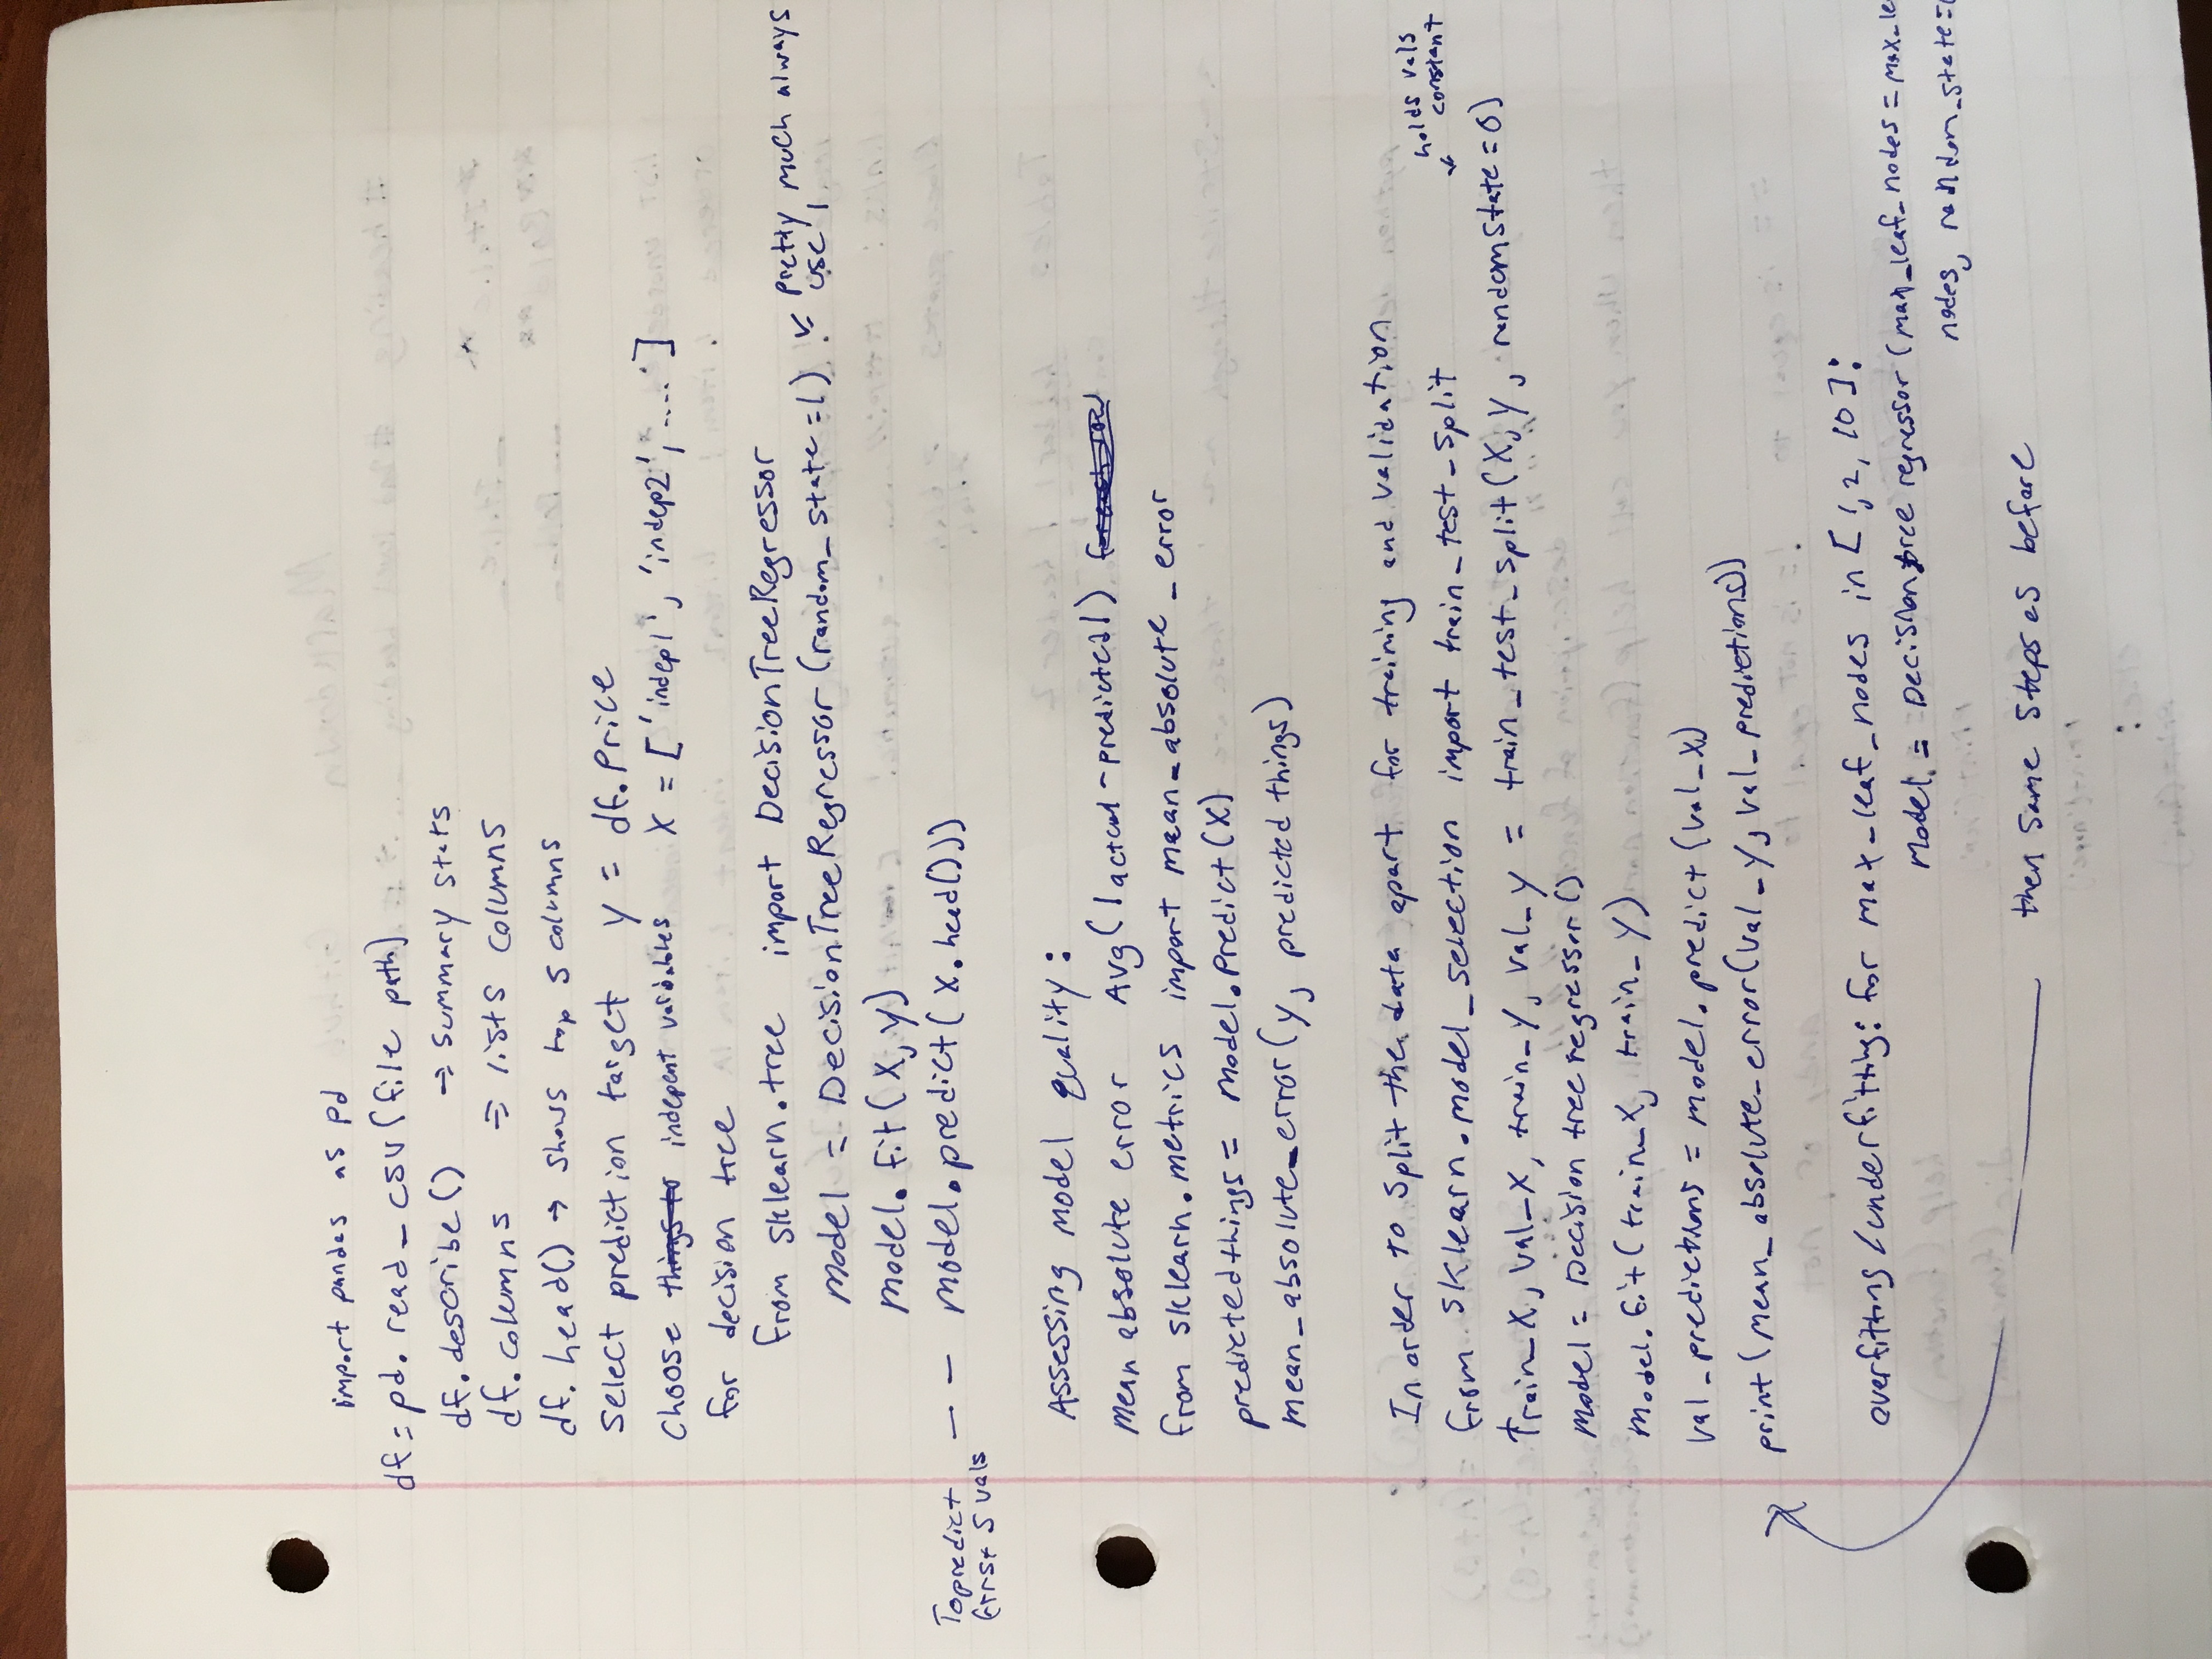 import pandas as pd
df = pd. read_csv(file path)
df. describe() → Summary stats
df. columns ⇒ lists columns
df. head() → shows top 5 columns
Select prediction target y = df. Price
Choose things to indepent variables X = ['indep1', 'indep2', ....']
for decision tree
from sklearn.tree import DecisionTreeRegressor
model = DecisionTreeRegressor (random_state=1) ← pretty much always
use 1
model. fit(X, y)
To predict -- model.predict(X.head()))
first 5 vals
Assessing model quality:
mean absolute error Avg(|actual-predicted|) for each row
from sklearn.metrics import mean_absolute_error
predictedthings = model.Predict(X)
mean_absolute_error(y, predicted things)
In order to split the data apart for training and validation
holds vals
constant
from sklearn.model_selection import train_test_split
Train_X, val_X, train_y, val_y = train_test_split(X, y, randomstate=0)
model = Decision tree regressor()
model.fit(train_X, train_y)
val_predictions = model.predict(val_X)
print(mean_absolute_error(val_y, val_predictions))
overfitting/underfitting: for max_leaf_nodes in [1, 2, 10]:
model = Decision tree regressor (max_leaf_nodes = max_le
nodes, random_state=
then same steps as before